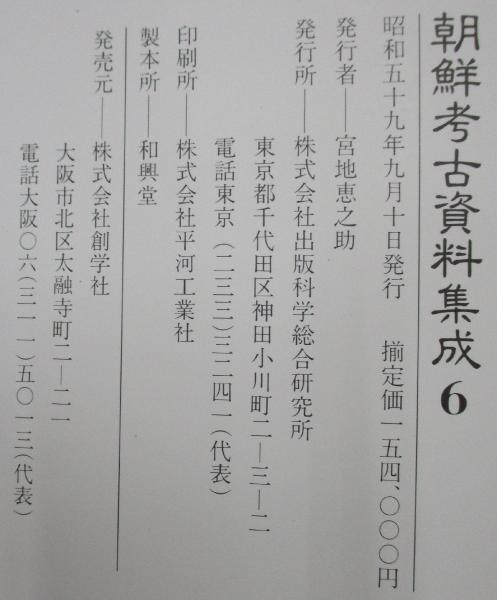 朝鮮考古資料集成6
昭和五十九年九月十日発行 揃定価一五四、〇〇〇円
発行者──宮地恵之助
発行所──株式会社出版科学総合研究所
東京都千代田区神田小川町二─三─二
電話東京(二三三)三二四一(代表)
印刷所──株式会社平河工業社
製本所──和興堂
発売元──株式会社創学社
大阪市北区太融寺町二─二一
電話大阪〇六(三一一)五〇一三(代表)